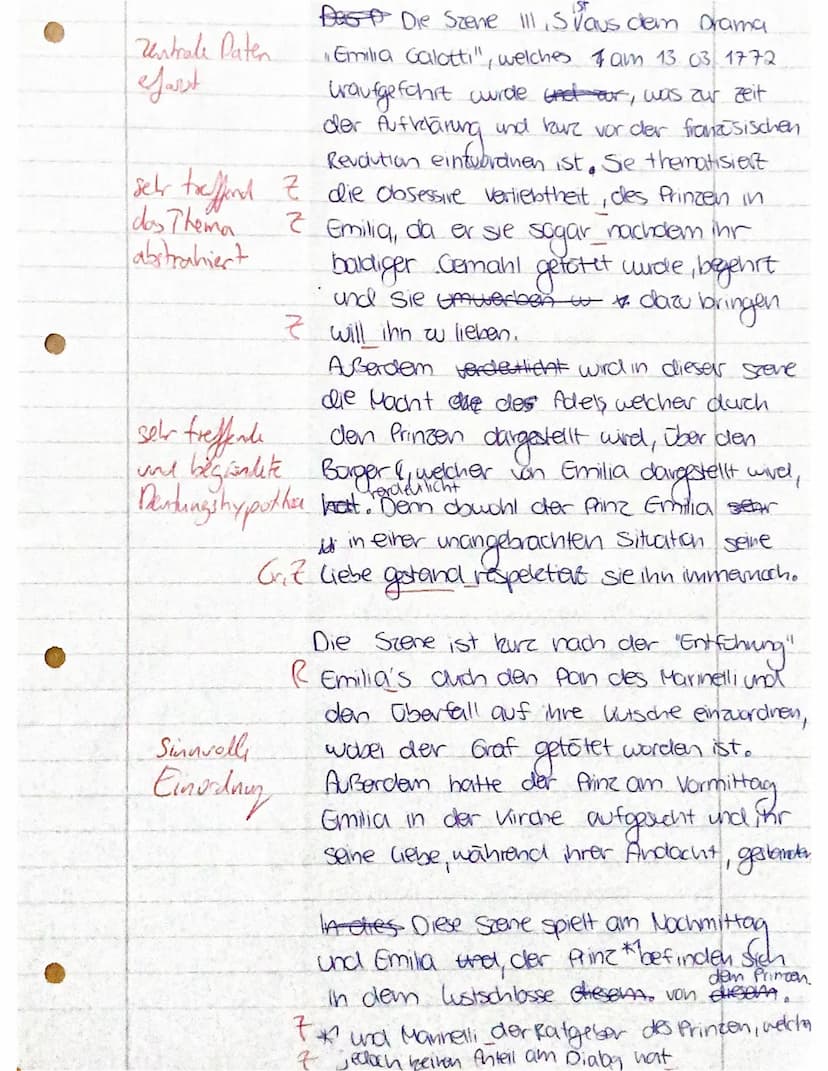 Die Szene III, 5 ist aus dem Drama
"Emilia Galotti", welches am 13 03 1772
Zentrale Daten
erfasst
uraufgeführt wurde und zur, was zur Zeit
der Aufklärung und kurz vor der französischen
Revolution einzuordnen ist. Sie thematisiert
sehr treffend Z die obsessive Verliebtheit, des Prinzen in
das Thema Z Emilia, da er sie sogar nachdem ihr
abstrahiert
baldiger Gemahl getötet wurde, begehrt
und sie umwerben dazu bringen
Z will ihn zu lieben.
Außerdem verdeutlicht wird in dieser Szene
die Macht des Adels, welcher durch
sehr treffende den Prinzen dargestellt wird, über den
und begründete Bürger, welcher von Emilia dargestellt wird,
Deutungshypothese verdeutlicht. Denn obwohl der Prinz Emilia sehr
in einer unangebrachten Situation seine
Gr, Z Liebe gestand respektiert sie ihn immernoch.
Die Szene ist kurz nach der "Entführung"
R Emilia's durch den Plan des Marinelli und
den Überfall auf ihre Kutsche einzuordnen,
Sinnvolle wobei der Graf getötet worden ist.
Einordnung Außerdem hatte der Prinz am Vormittag
Emilia in der Kirche aufgesucht und ihr
seine Liebe, während ihrer Andacht, gestanden
In dies Diese Szene spielt am Nachmittag
und Emilia und, der Prinz *¹ befinden sich
in dem Lustschlosse diesem. von dem Prinzen diesem.
Z *¹ und Marinelli der Ratgeber des Prinzen, welcher
Z jedoch keinen Anteil am Dialog hat